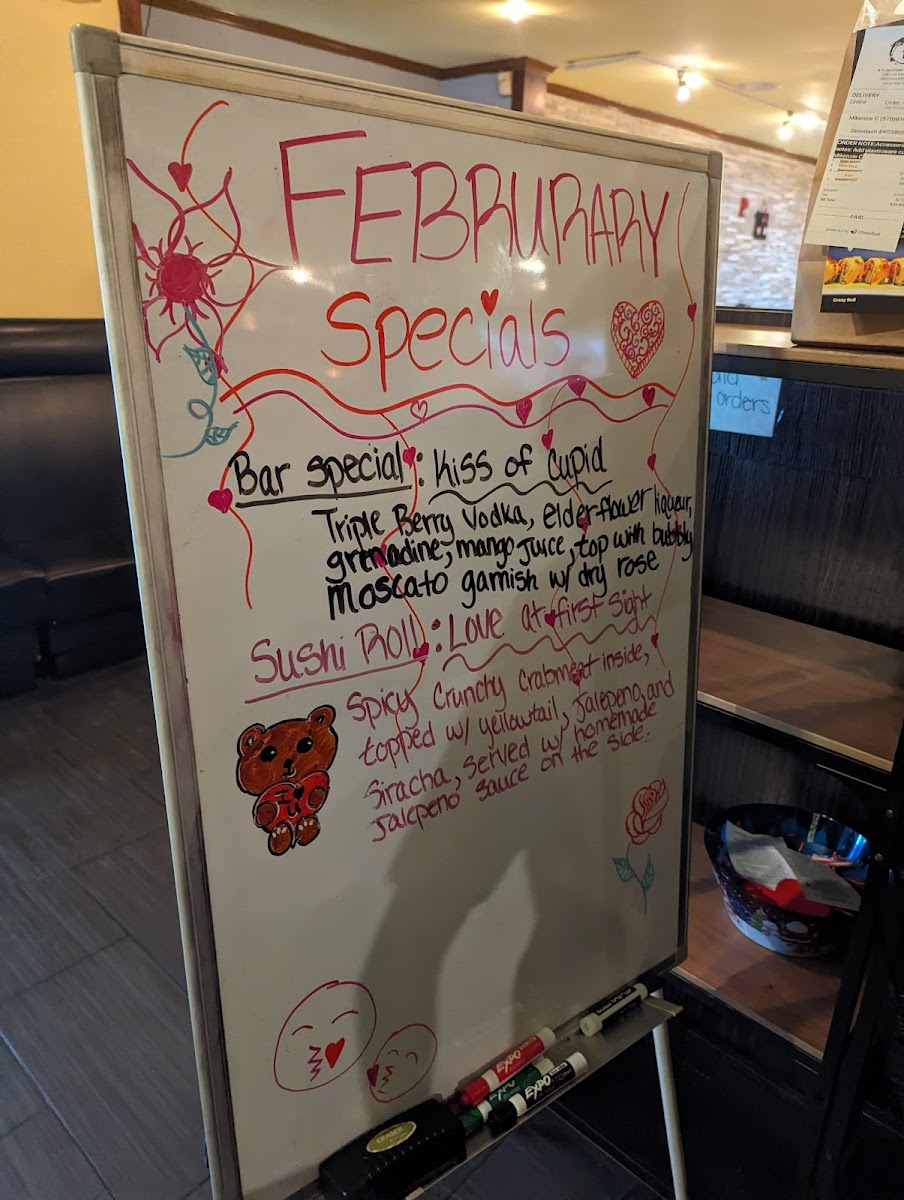 FEBRURARY
Specials
Bar special: Kiss of Cupid
Triple Berry Vodka, elder-flower liqueur,
grenadine, mango juice, top with bubbly
moscato garnish w/ dry rose
Sushi Roll: Love at first sight
Spicy Crunchy Crabmeat inside,
topped w/ yellowtail, Jalepeno, and
Siracha, served w/ homemade
Jalepeno sauce on the side.
orders
DELIVERY
Online
PAID
Crazy Roll
EXPO
EXPO
EXPO
ERASER